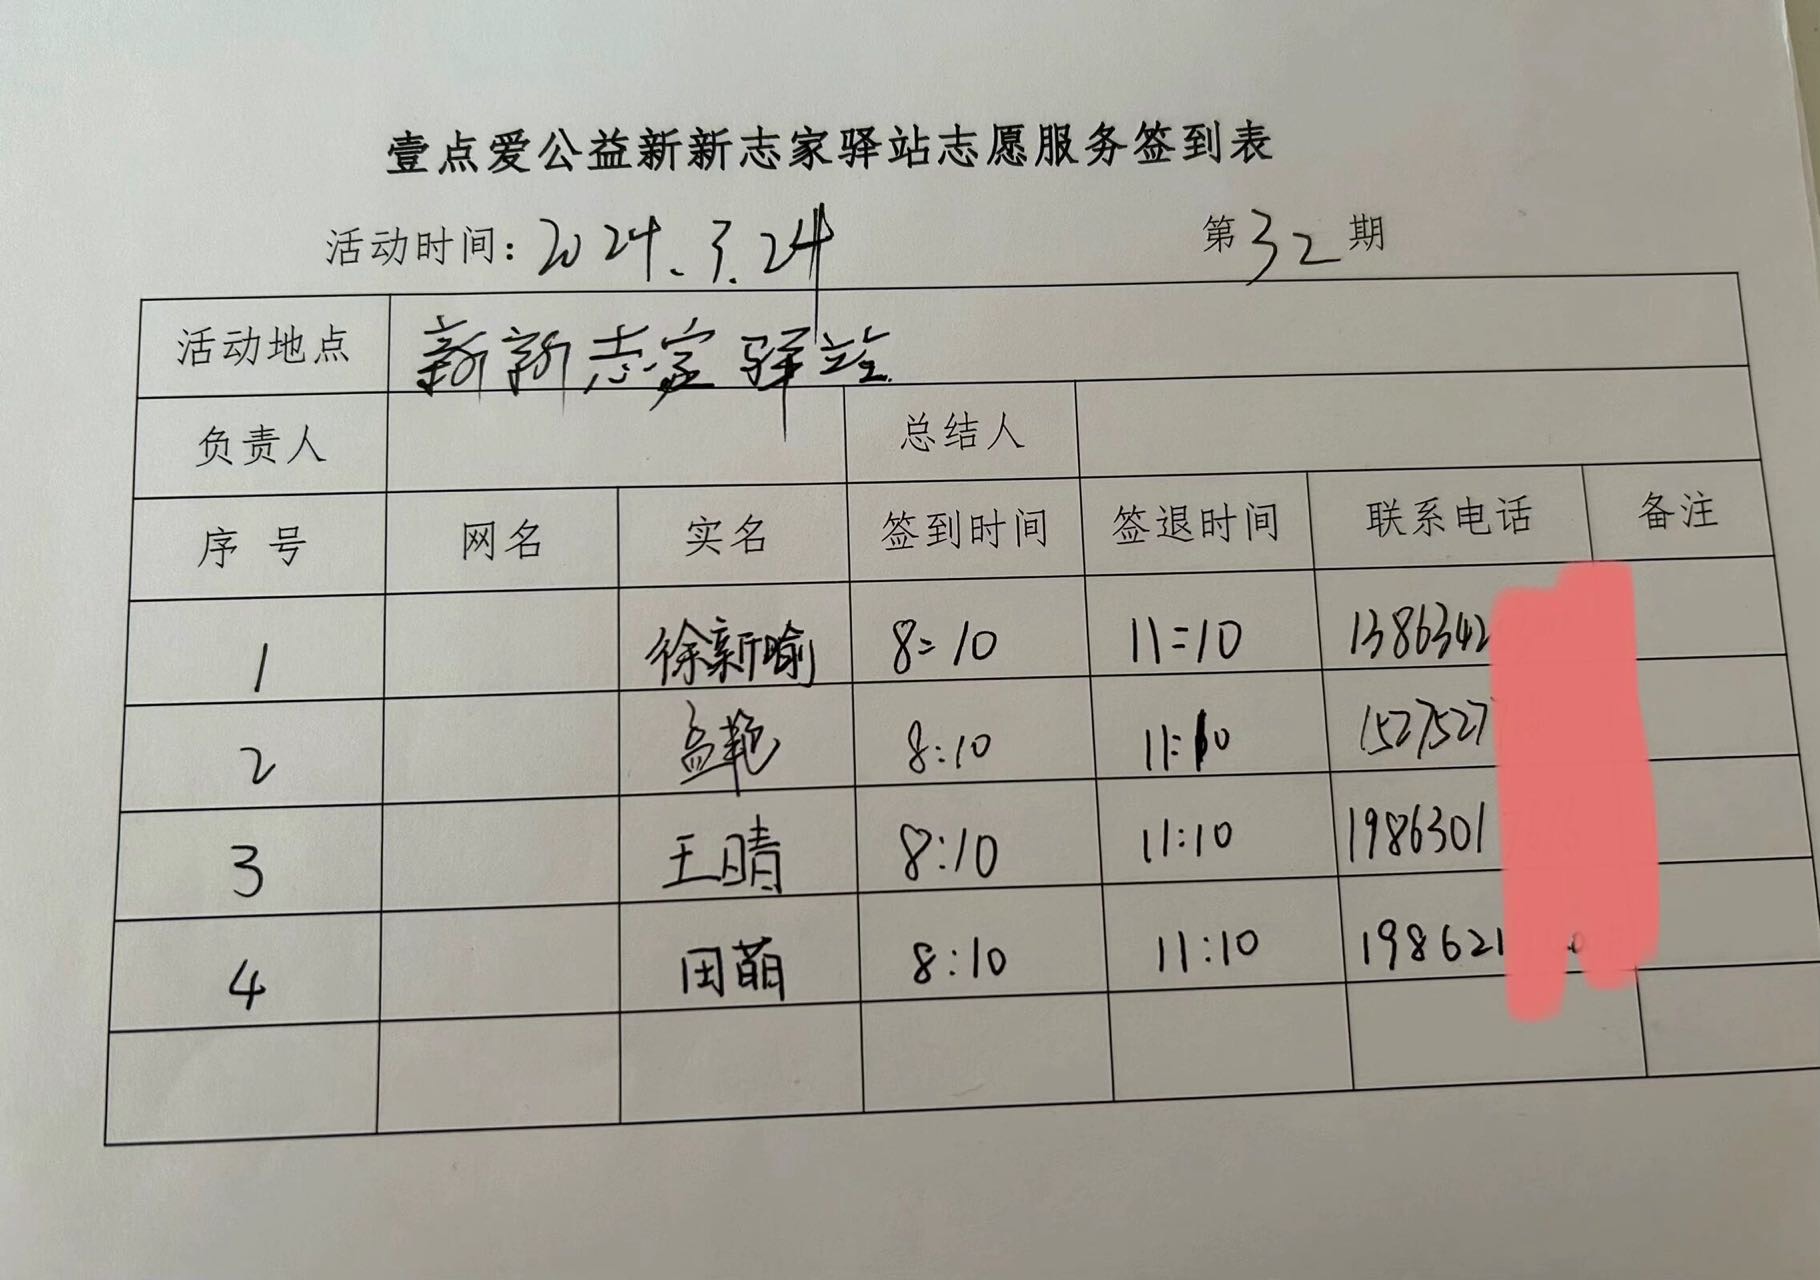 壹点爱公益新新志家驿站志愿服务签到表
活动时间：2024.3.24 第32期
活动地点 新新志家驿站
负责人 总结人
序号 网名 实名 签到时间 签退时间 联系电话 备注
1 徐新喻 8:10 11:10 1386342
2 孟艳 8:10 11:10 1527527
3 王晴 8:10 11:10 1986301
4 田萌 8:10 11:10 198621